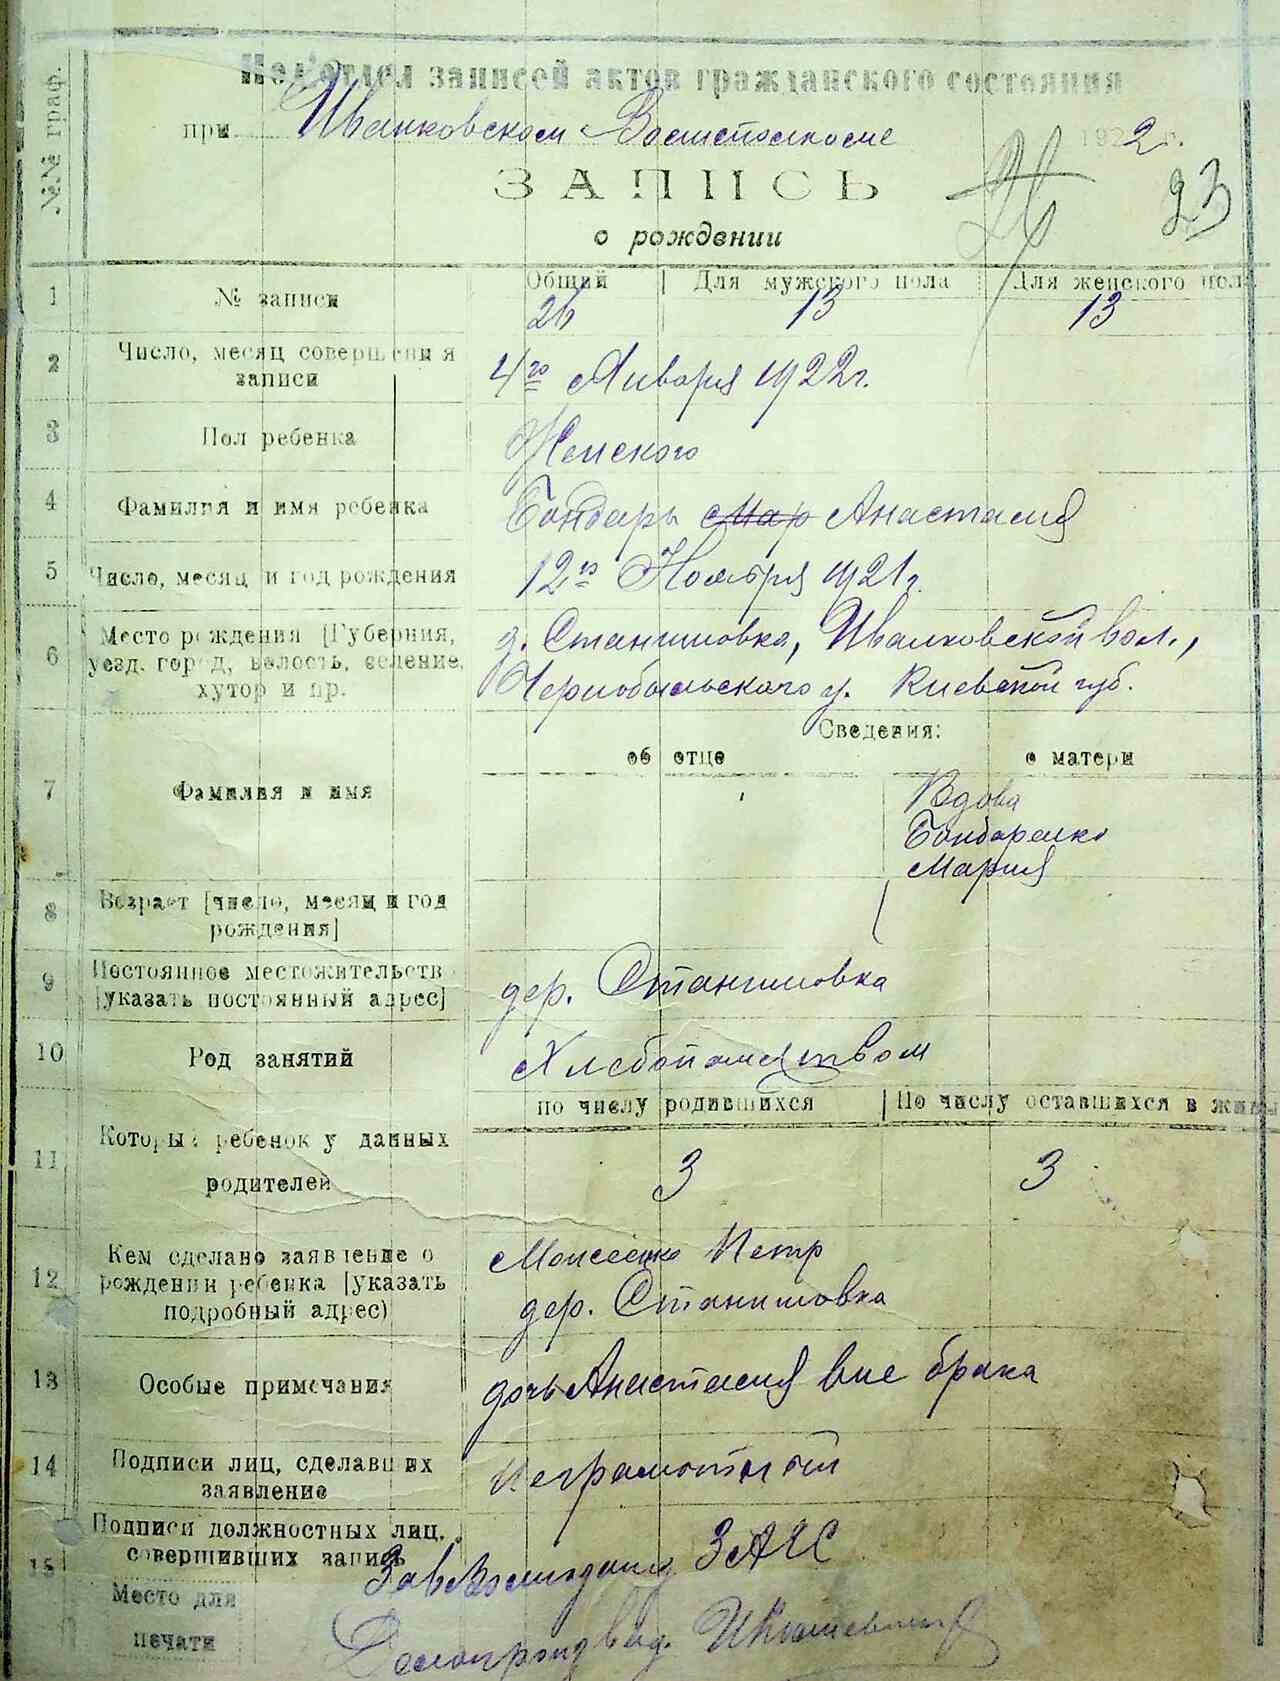 №№ граф.
Под'отдел записей актов гражданского состояния
при Иванковском 1922 г.
ЗАПИСЬ
23
о рождении
Общий | Для мужского пола | Для женского пола
1 № записи 26 13 13
2 Число, месяц совершения записи 4го Января 1922 г.
3 Пол ребенка Женского
4 Фамилия и имя ребенка Бондарь Мар Анастасия
5 Число, месяц и год рождения 12го Ноября 1921 г.
6 Место рождения [Губерния, уезд, город, волость, селение, хутор и пр. д. Станишовка, Иванковской вол.,
Чернобыльского у. Киевской губ.
Сведения:
об отце о матери
7 Фамилия и имя Вдова
Бондаренко
Мария
8 Возраст [число, месяц и год рождения]
9 Постоянное местожительств [указать постоянный адрес] дер. Станишовка
10 Род занятий Хлебопашеством
по числу родившихся | По числу оставшихся в живых
11 Который ребенок у данных родителей 3 3
12 Кем сделано заявление о рождении ребенка [указать подробный адрес) Моисеенко Петр
дер. Станишовка
13 Особые примечания дочь Анастасия вне брака
14 Подписи лиц, сделавших заявление неграмотный
15 Подписи должностных лиц, совершивших запись
ЗАГС
Место для
печати